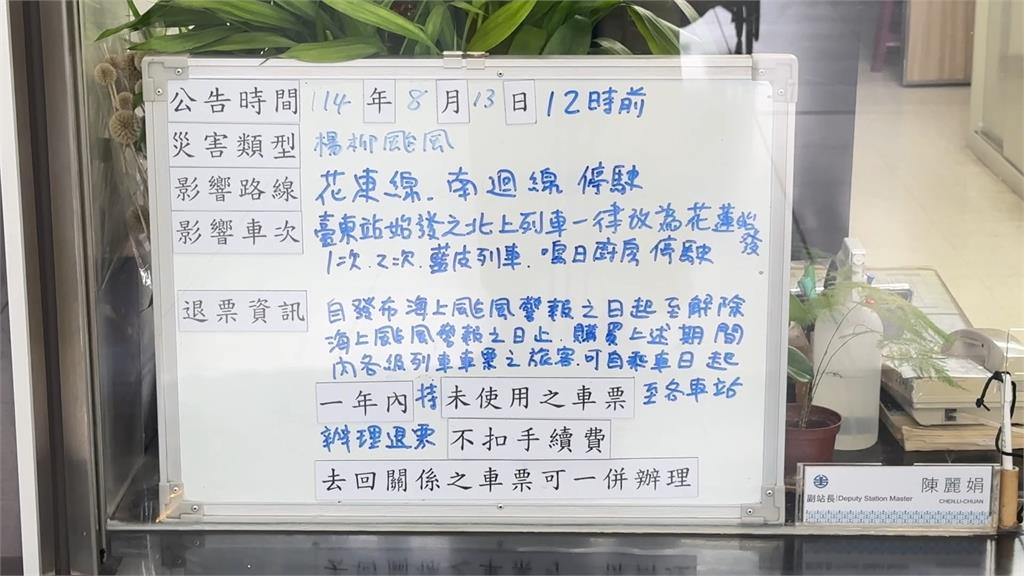 公告時間 114 年 8 月 13 日 12時前
災害類型 楊柳颱風
影響路線 花東線.南迴線 停駛
影響車次 臺東站始發之北上列車一律改為花蓮始發
1次.2次.藍皮列車.鳴日廚房 停駛
退票資訊 自發布海上颱風警報之日起至解除
海上颱風警報之日止.購買上述期間
內各級列車車票之旅客.可自乘車日起
一年內 持 未使用之車票 至各車站
辦理退票 不扣手續費
去回關係之車票可一併辦理
副站長 Deputy Station Master 陳麗娟
CHEN,LI-CHUAN